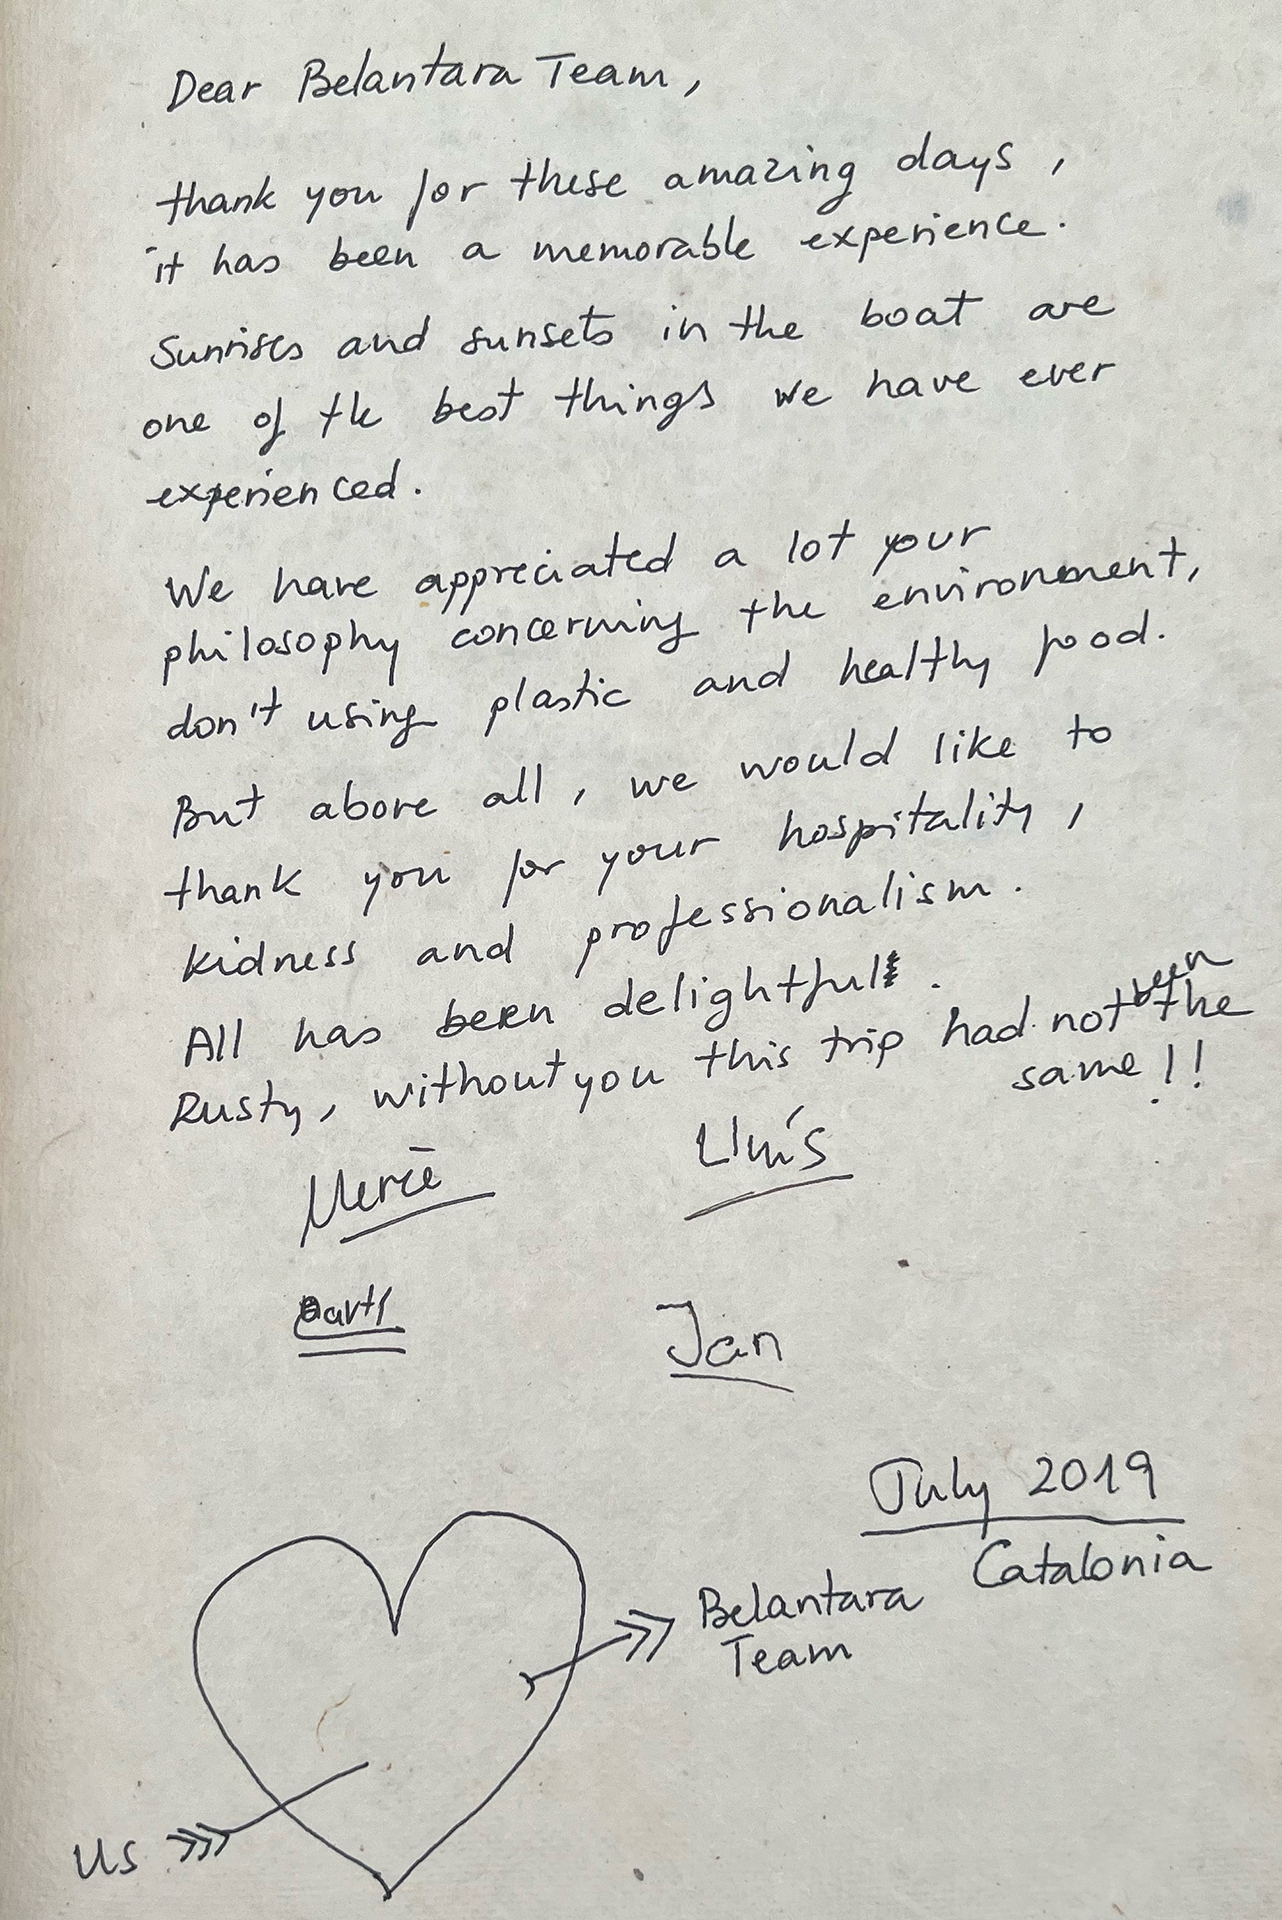 Dear Belantara Team,
thank you for these amazing days,
it has been a memorable experience.
Sunrises and sunsets in the boat are
one of the best things we have ever
experienced.
We have appreciated a lot your
philosophy concerning the environement,
don't using plastic and healthy food.
But above all, we would like to
thank you for your hospitality,
kidness and professionalism.
All has been delightful.
Rusty, without you this trip had not been the
same!!
Mercè
Lluís
Jan
July 2019
Catalonia
Belantara
Team
Us